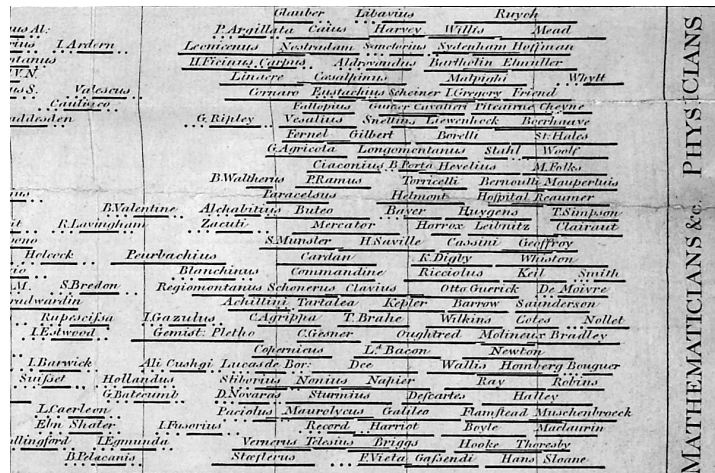 Glauber Libavius Ruych
us Al: P. Argillata Caius Harvey Willis Mead
rius I. Ardern Leonicenus Nostradam Sanctorius Sydenham Hoffman
ntanus M. Ficinus Carpus Aldrovandus Bartholin Etmuller
V.N. Linacre Cæsalpinus Malpighi Whytt
us S. Valescus Cornaro Eustachius Scheiner I. Gregory Friend
Cauliaco Fallopius Cavalieri Pitcairne Cheyne
addesden G. Ripley Vesalius Snellius Liewenhock Boerhaave
Fernel Gilbert Borelli St. Hales
G. Agricola Longomontanus Stahl Woolf
Ciaconius B. Porta Hevelius M. Folks
B. Waltherus P. Ramus Torricelli Bernoulli Maupertuis
ius Paracelsus Helmont Hospital Reaumer
B. Valentine Alchabitius Buteo Bayer Huygens T. Simpson
it R. Lavingham Zacuti Mercator Horrox Leibnitz Clairaut
ono S. Munster H. Saville Cassini Geoffroy
Holcock Peurbachius Cardan K. Digby Whiston
gio Blanchinus Commandine Ricciolus Keil Smith
M. S. Bredon Regiomontanus Schonerus Clavius Otto Guerick De Moivre
radwardin Achillini Tartalea Kepler Barrow Saunderson
Rupescissa I. Gazulus C. Agrippa T. Brahe Wilkins Cotes Nollet
I. Estwood Gemist: Pletho C. Gesner Oughtred Molineux Bradley
Copernicus Ld. Bacon Newton
I. Barwick Ali Cushgi Lucas de Bor: Dee Wallis Homberg Bouguer
Suisset Hollandus Stiborius Nonius Napier Ray Robins
G. Batecumb D. Novaras Sturmius Descartes Halley
L. Caerleon Paciolus Maurolycus Galileo Flamstead Muschenbroeck
Ebn Shater I. Fusorius Record Harriot Boyle Maclaurin
allingford I. Egmunda Vernerus Telesius Briggs Hooke Thoresby
B. Pelacanis Stoeflerus F. Vieta Gassendi Hans Sloane
MATHEMATICIANS &c. PHYSICIANS